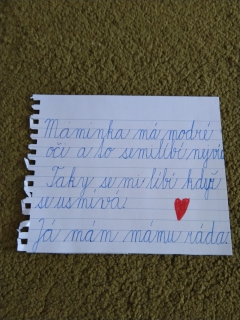 Maminka má modré
oči a to semilibí nyvíc
Taky se mi líbí když
se usmívá.
Já mám mámu ráda.